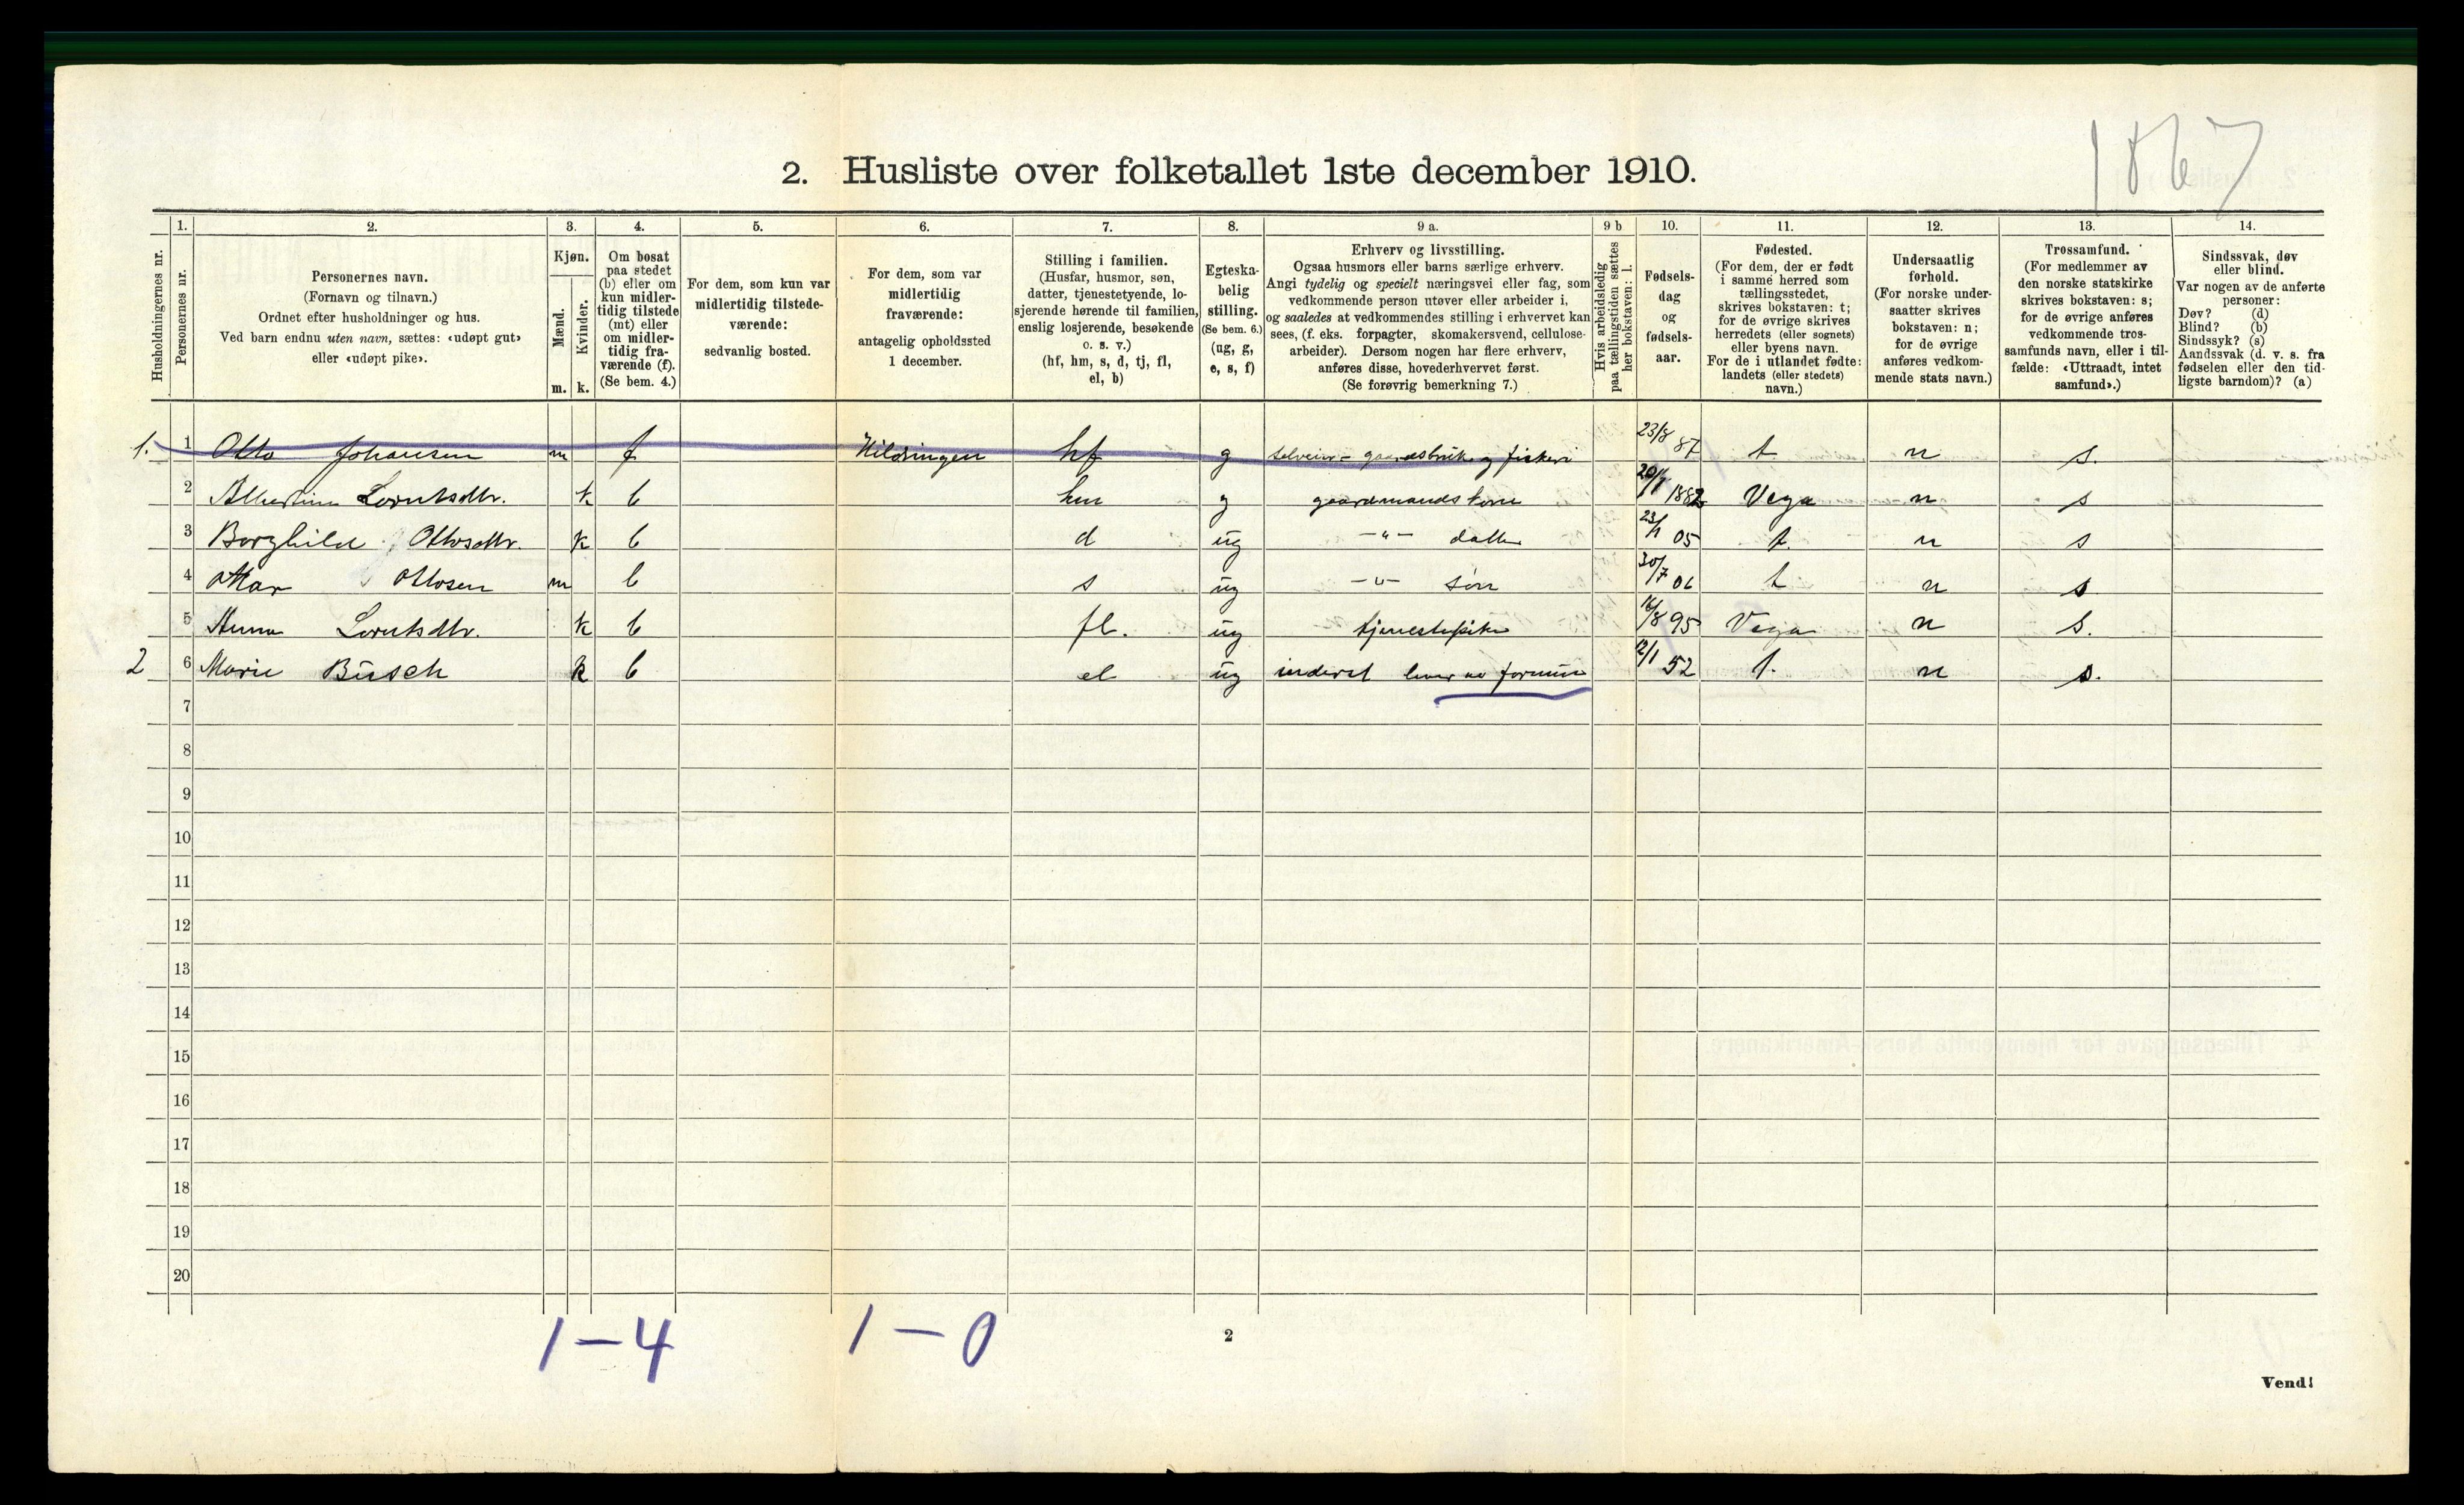 1867
2. Husliste over folketallet 1ste december 1910.
Husholdningernes nr.
1.
Personernes nr.
2.
Personernes navn.
(Fornavn og tilnavn.)
Ordnet efter husholdninger og hus.
Ved barn endnu uten navn, sættes: «udøpt gut»
eller «udøpt pike».
3.
Kjøn.
Mænd.
m.
Kvinder.
k.
4.
Om bosat
paa stedet
(b) eller om
kun midler-
tidig tilstede
(mt) eller
om midler-
tidig fra-
værende (f).
(Se bem. 4.)
5.
For dem, som kun var
midlertidig tilstede-
værende:
sedvanlig bosted.
6.
For dem, som var
midlertidig
fraværende:
antagelig opholdssted
1 december.
7.
Stilling i familien.
(Husfar, husmor, søn,
datter, tjenestetyende, lo-
sjerende hørende til familien,
enslig losjerende, besøkende
o. s. v.)
(hf, hm, s, d, tj, fl,
el, b)
8.
Egteska-
belig
stilling.
(Se bem. 6.)
(ug, g,
e, s, f)
9 a.
Erhverv og livsstilling.
Ogsaa husmors eller barns særlige erhverv.
Angi tydelig og specielt næringsvei eller fag, som
vedkommende person utøver eller arbeider i,
og saaledes at vedkommendes stilling i erhvervet kan
sees, (f. eks. forpagter, skomakersvend, cellulose-
arbeider). Dersom nogen har flere erhverv,
anføres disse, hovederhvervet først.
(Se forøvrig bemerkning 7.)
9 b
Hvis arbeidsledig
paa tællingstiden sættes
her bokstaven: l.
10.
Fødsels-
dag
og
fødsels-
aar.
11.
Fødested.
(For dem, der er født
i samme herred som
tællingsstedet,
skrives bokstaven: t;
for de øvrige skrives
herredets (eller sognets)
eller byens navn.
For de i utlandet fødte:
landets (eller stedets)
navn.)
12.
Undersaatlig
forhold.
(For norske under-
saatter skrives
bokstaven: n;
for de øvrige
anføres vedkom-
mende stats navn.)
13.
Trossamfund.
(For medlemmer av
den norske statskirke
skrives bokstaven: s;
for de øvrige anføres
vedkommende tros-
samfunds navn, eller i til-
fælde: «Uttraadt, intet
samfund».)
14.
Sindssvak, døv
eller blind.
Var nogen av de anførte
personer:
Døv? (d)
Blind? (b)
Sindssyk? (s)
Aandssvak (d. v. s. fra
fødselen eller den tid-
ligste barndom)? (a)
1. 1 Otto Johansen m f Hildringen hf g selveier- gaardsbruk og fiskeri 23/8 87 t n s.
2 Albertine Lorntsdtr. k b hm g gaardmands kone 1882 Vega n s
3 Borghild Ottosdtr. k b d ug -"- datter 05 t. n s
4 Ottar Ottosen m b s ug -"- søn 30/7 06 t n s
5 Anna Lorntsdtr. k b fl. ug tjenestepike 16/8 95 Vega n s.
2 6 Marie Büsch k b el ug inderst lever av formue 12/1 52 t. n s.
7
8
9
10
11
12
13
14
15
16
17
18
19
20
1-4 1-0
2
Vend!